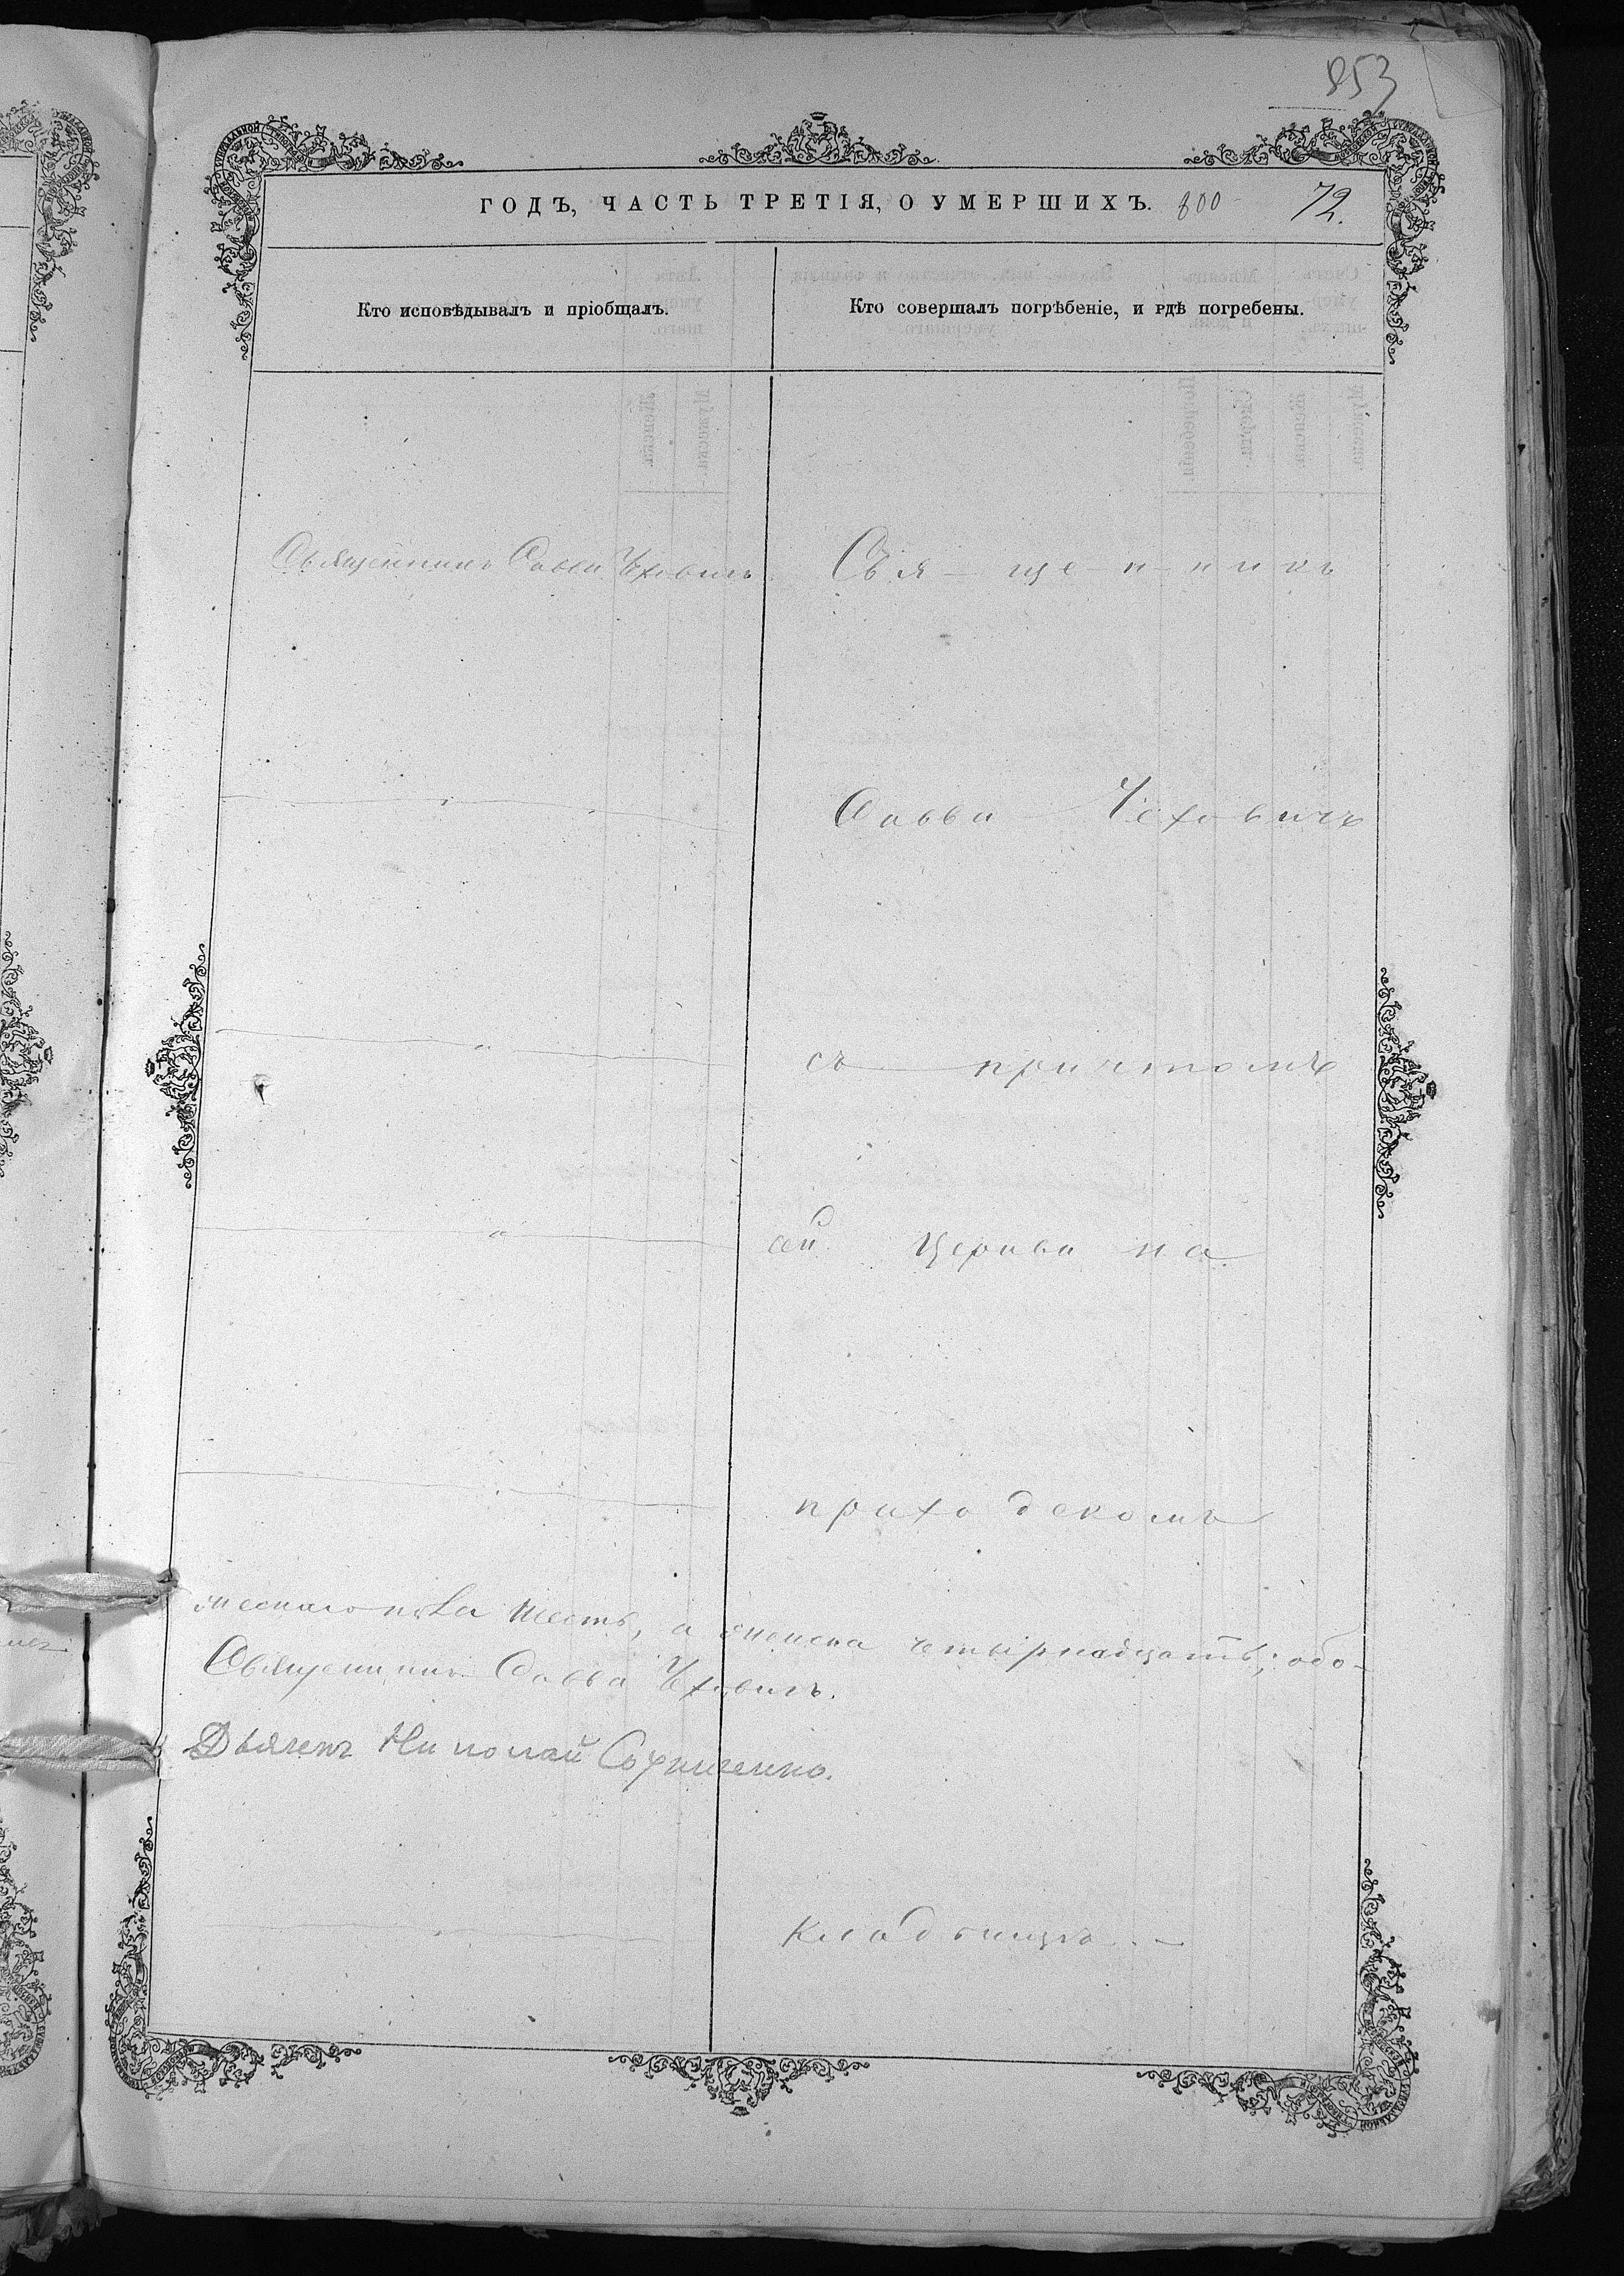 853
ГОДЪ, ЧАСТЬ ТРЕТІЯ, О УМЕРШИХЪ. 800 72.
Кто исповѣдывалъ и пріобщалъ.
Кто совершалъ погрѣбеніе, и гдѣ погребены.
Священникъ Савва Чеховичъ
Свя — ще — н — никъ
Савва Чеховичъ
съ причтомъ
сей Церкви на
приходскомъ
шесть, а женска четырнадцать; обо-
Священникъ Савва Чеховичъ.
Дьячекъ Николай
кладбищѣ. —